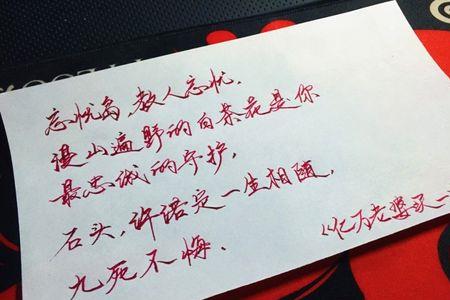 忘忧岛，教人忘忧.
漫山遍野的白茶花是你
最忠诚的守护.
石头，许诺定一生相随.
九死不悔.
《亿万老婆买一